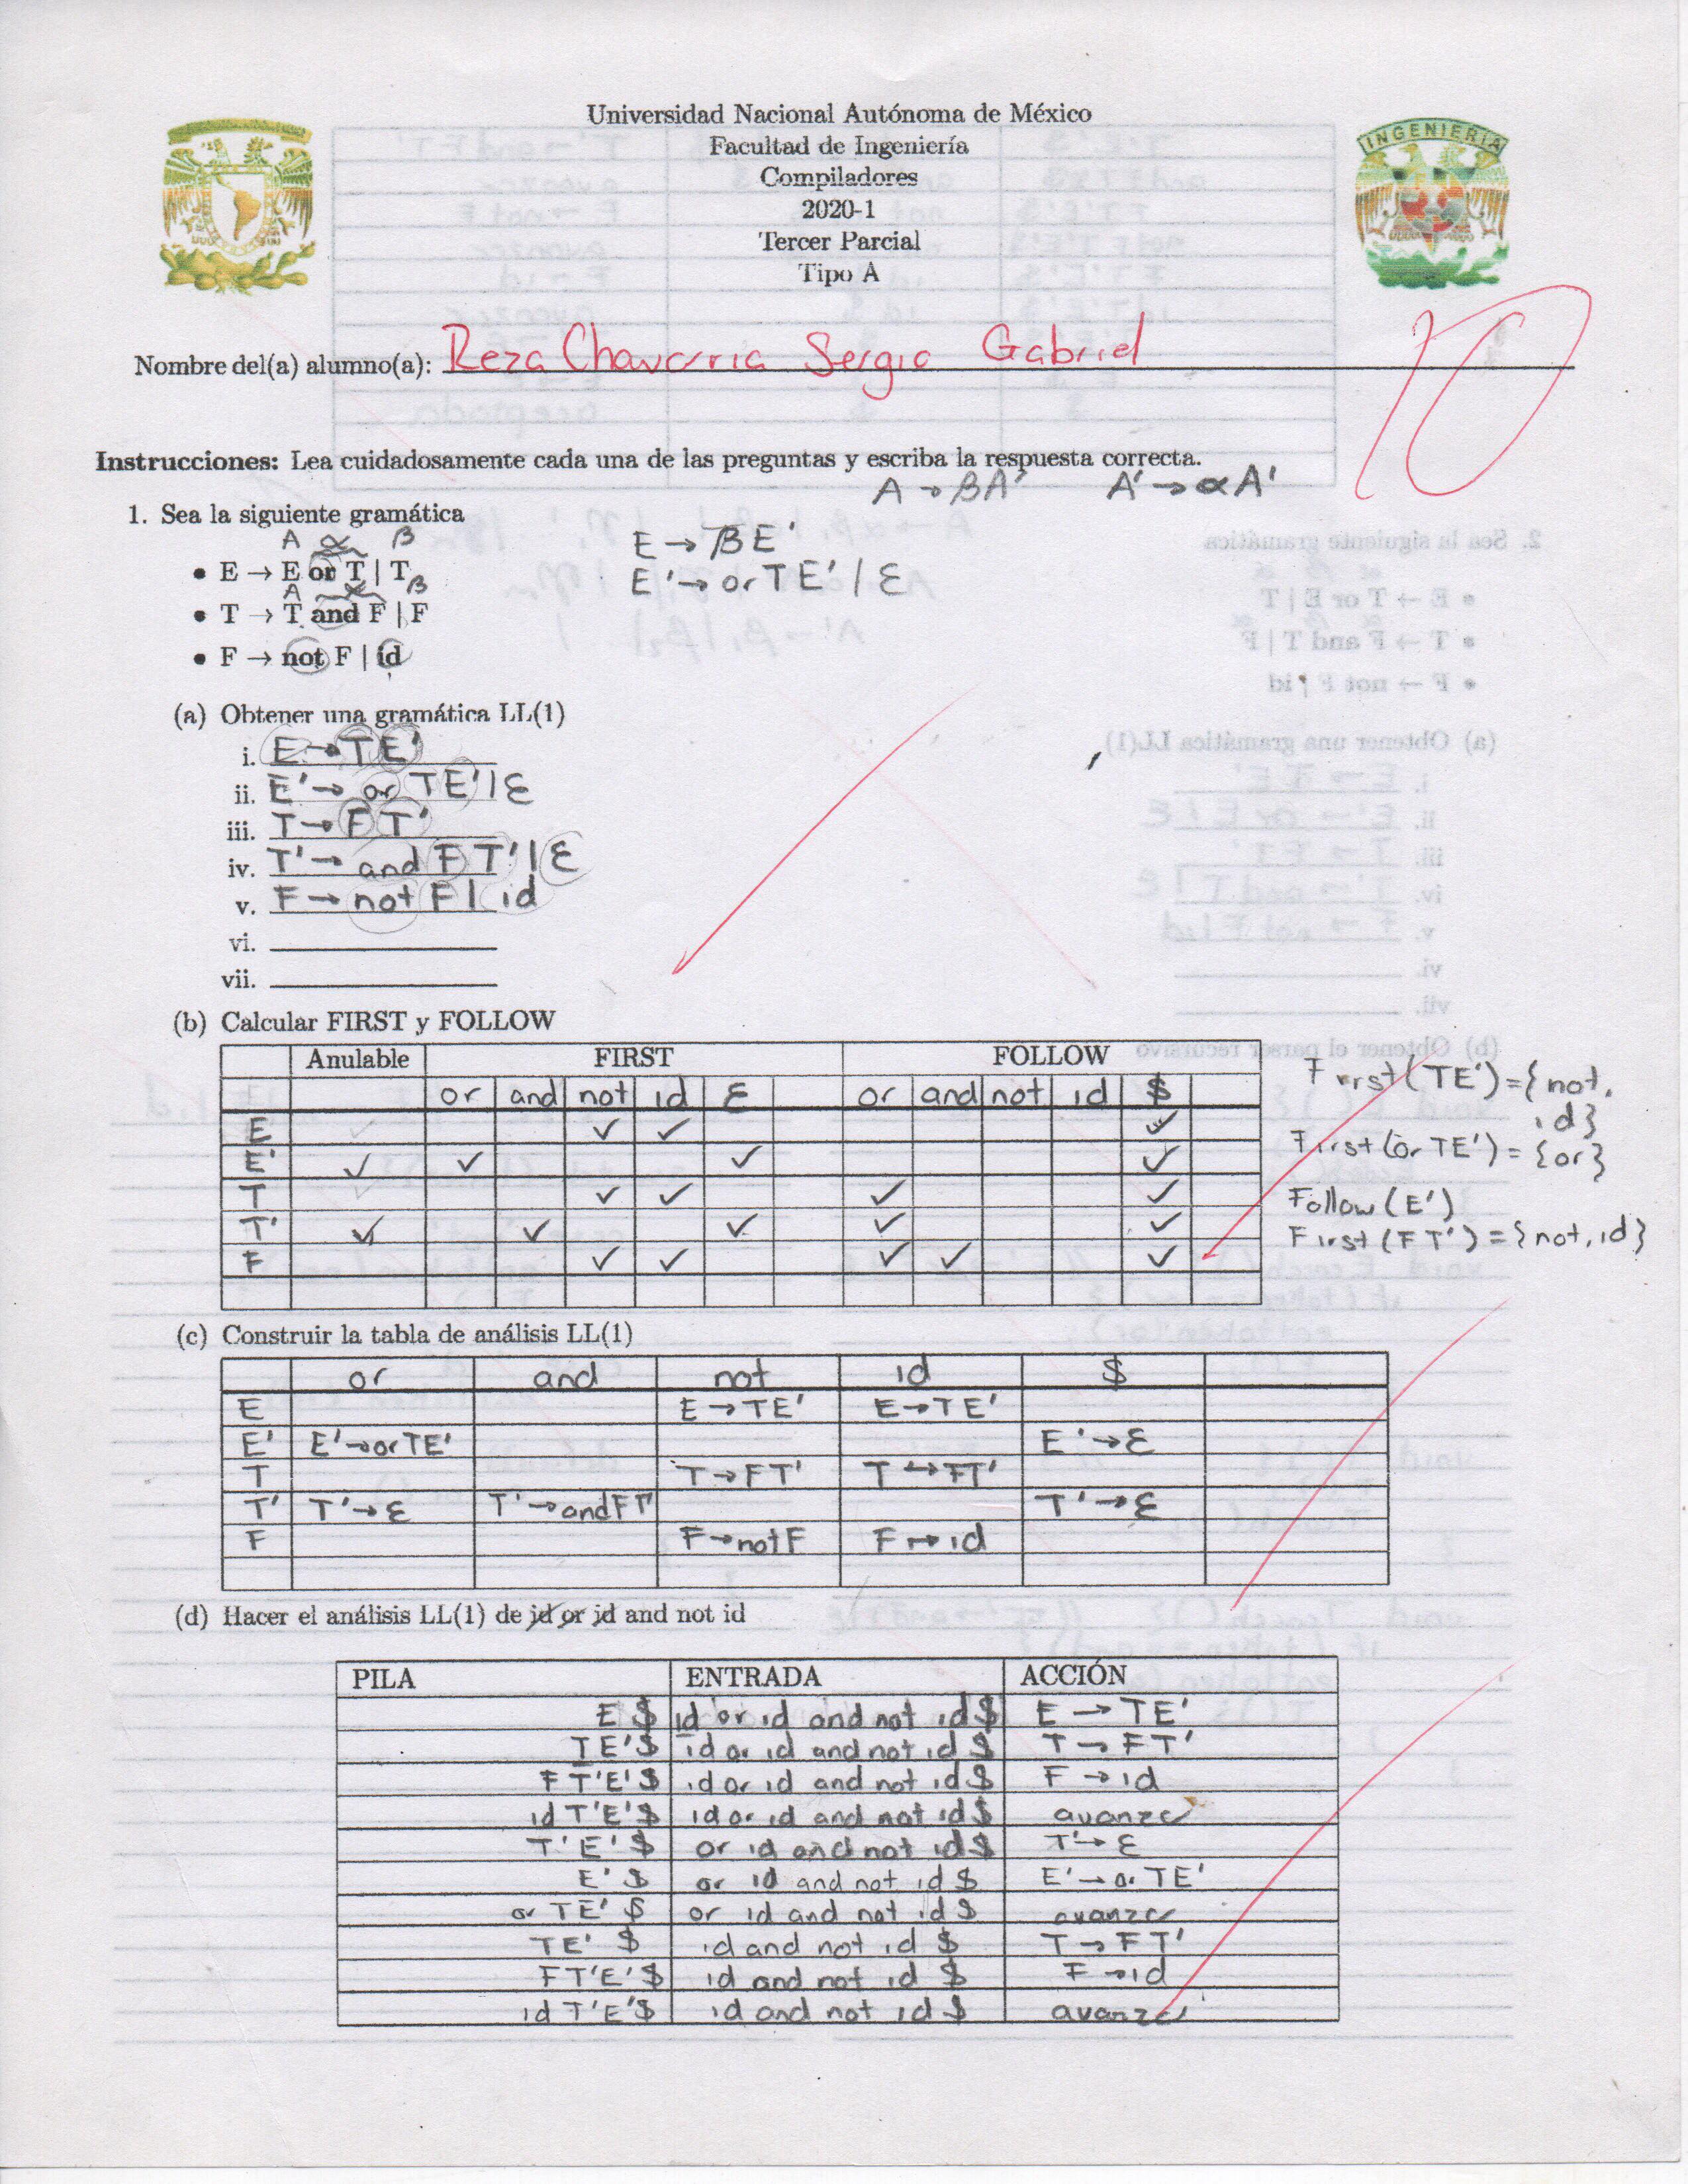 Universidad Nacional Autónoma de México
Facultad de Ingeniería
Compiladores
2020-1
Tercer Parcial
Tipo A
INGENIERIA
10
Nombre del(a) alumno(a): Reza Chavarria Sergio Gabriel
Instrucciones: Lea cuidadosamente cada una de las preguntas y escriba la respuesta correcta.
A → βA' A' → αA'
1. Sea la siguiente gramática
A α β
• E → E or T | T
E → βE'
E' → or T E' / ε
A α β
• T → T and F | F
• F → not F | id
(a) Obtener una gramática LL(1)
i. E → T E'
ii. E' → or T E' | ε
iii. T → F T'
iv. T' → and F T' | ε
v. F → not F | id
vi.
vii.
(b) Calcular FIRST y FOLLOW
Anulable FIRST FOLLOW
or and not id ε or and not id $
E ✓ ✓ ✓
E' ✓ ✓ ✓ ✓
T ✓ ✓ ✓ ✓
T' ✓ ✓ ✓ ✓ ✓
F ✓ ✓ ✓ ✓ ✓
First(TE')={not,
id}
First(or TE')={or}
Follow(E')
First(FT')={not,id}
(c) Construir la tabla de análisis LL(1)
or and not id $
E E→TE' E→TE'
E' E'→orTE' E'→ε
T T→FT' T→FT'
T' T'→ε T'→andFT' T'→ε
F F→notF F→id
(d) Hacer el análisis LL(1) de id or id and not id
PILA ENTRADA ACCIÓN
E $ id or id and not id $ E → TE'
TE'$ id or id and not id $ T → FT'
FT'E'$ id or id and not id $ F → id
id T'E'$ id or id and not id $ avanza
T'E'$ or id and not id $ T'→ ε
E'$ or id and not id $ E'→ or TE'
or TE'$ or id and not id $ avanza
TE' $ id and not id $ T → FT'
FT'E'$ id and not id $ F → id
id T'E'$ id and not id $ avanza